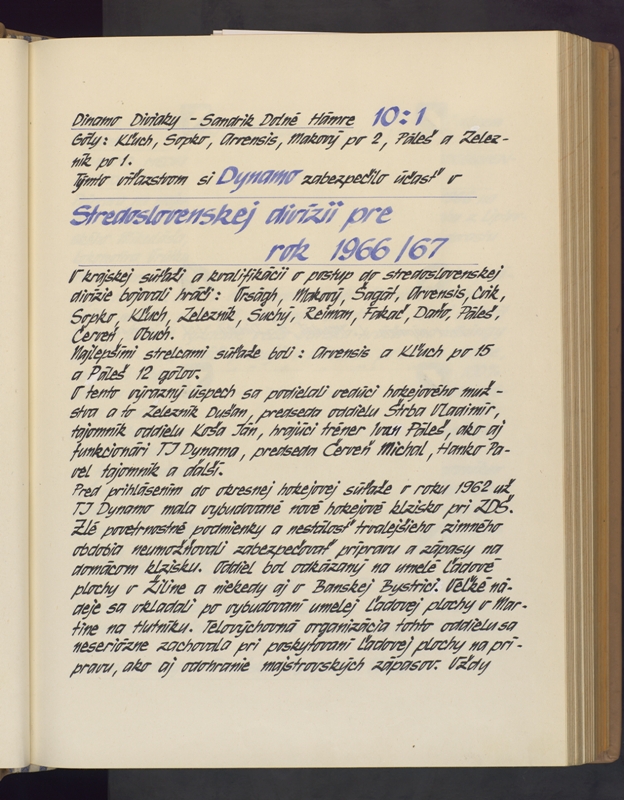 Dinamo Diviaky - Sandrik Dolné Hámre 10:1
Góly: Kľuch, Sopko, Arvensis, Makový po 2, Páleš a Želez-
ník po 1.
Týmto víťazstvom si Dynamo zabezpečilo účasť v
Stredoslovenskej divízii pre
rok 1966/67
V krajskej súťaži a kvalifikácii o postup do stredoslovenskej
divízie bojovali hráči: Orságh, Makový, Šagát, Arvensis, Cvik,
Sopko, Kľuch, Železník, Suchý, Reiman, Fakač, Daňo, Páleš,
Červeň, Obuch.
Najlepšími strelcami súťaže boli: Arvensis a Kľuch po 15
a Páleš 12 gólov.
O tento výrazný úspech sa podielali vedúci hokejového muž-
stva a to Železník Dušan, predseda oddielu Štrba Vladimír,
tajomník oddielu Koša Ján, hrajúci tréner Ivan Páleš, ako aj
funkcionári TJ Dynama, predseda Červeň Michal, Hanko Pa-
vel tajomník a ďalší.
Pred prihlásením do okresnej hokejovej súťaže v roku 1962 už
TJ Dynamo mala vybudované nové hokejové klzisko pri ZDŠ.
Zlé povetrnostné podmienky a nestálosť trvalejšieho zimného
obdobia neumožňovali zabezpečovať prípravu a zápasy na
domácom klzisku. Oddiel bol odkázaný na umelé ľadové
plochy v Žiline a niekedy aj v Banskej Bystrici. Veľké ná-
deje sa vkladali po vybudovaní umelej ľadovej plochy v Mar-
tine na Hutníku. Telovýchovná organizácia tohto oddielu sa
neseriózne zachovala pri poskytovaní ľadovej plochy na prí-
pravu, ako aj odohranie majstrovských zápasov. Vždy